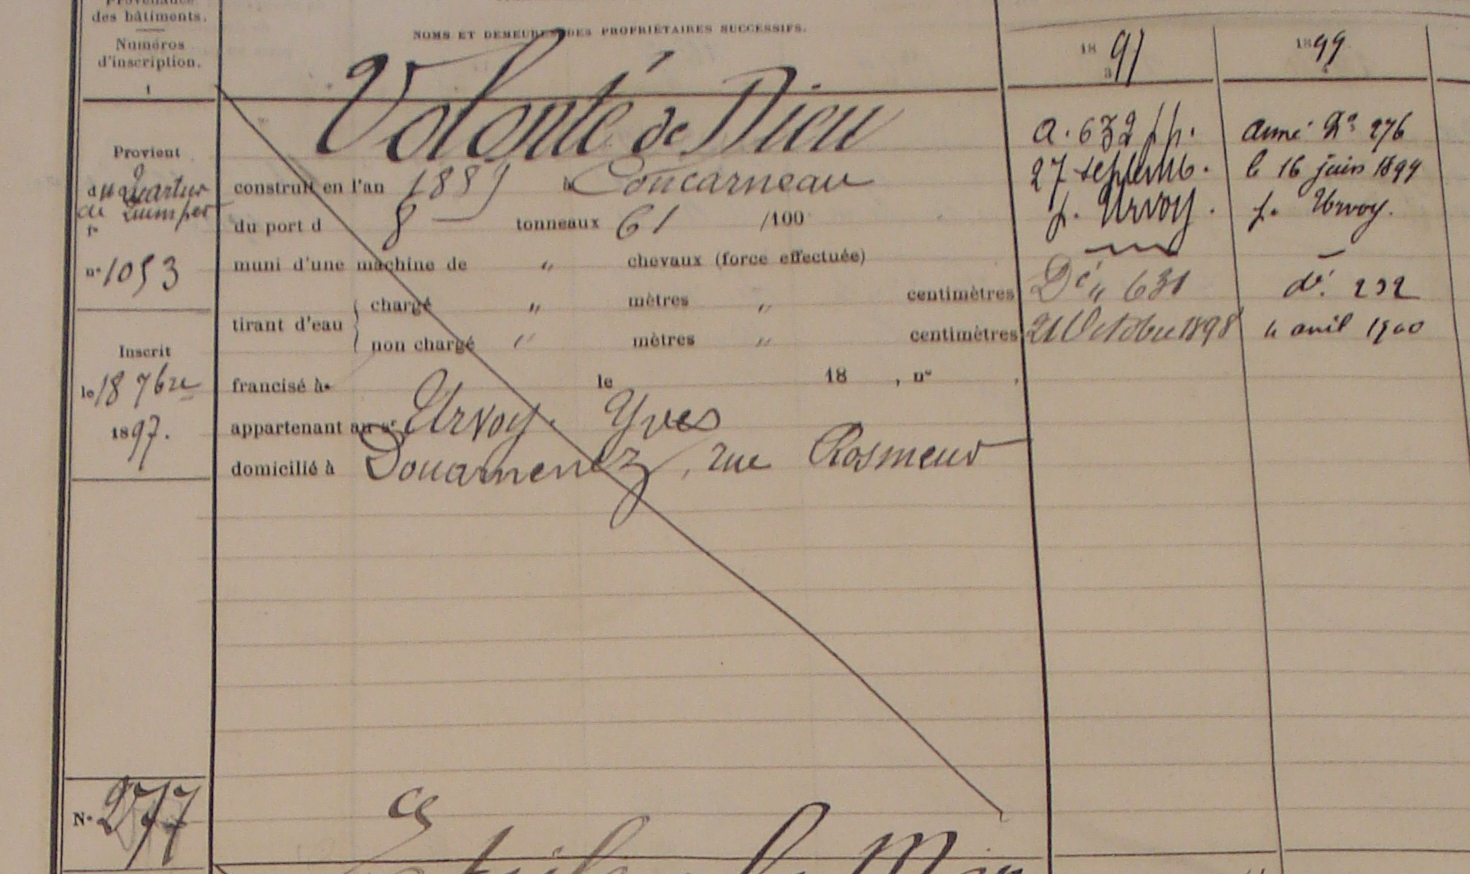 Provenance
des bâtiments.
Numéros
d'inscription.
1
NOMS ET DEMEURES DES PROPRIÉTAIRES SUCCESSIFS.
1891
1899
Volonté de Dieu
Provient
du Quartier
de Quimper
n° 1053
Inscrit
le 18 7bre
1897.
construit en l'an 1889 à Concarneau
du port d 8 tonneaux 61 /100
muni d'une machine de " chevaux (force effectuée)
tirant d'eau
chargé " mètres " centimètres
non chargé " mètres " centimètres
francisé à le 18 , n° .
appartenant au sr Urvoy. Yves
domicilié à Douarnenez, rue Rosmeur
a. 632 pp.
27 septemb.
p. Urvoy.
Dé " 631
21 Octobre 1898
armé No 276
le 16 juin 1899
p. Urvoy.
dé. 232
4 avril 1900
N° 277